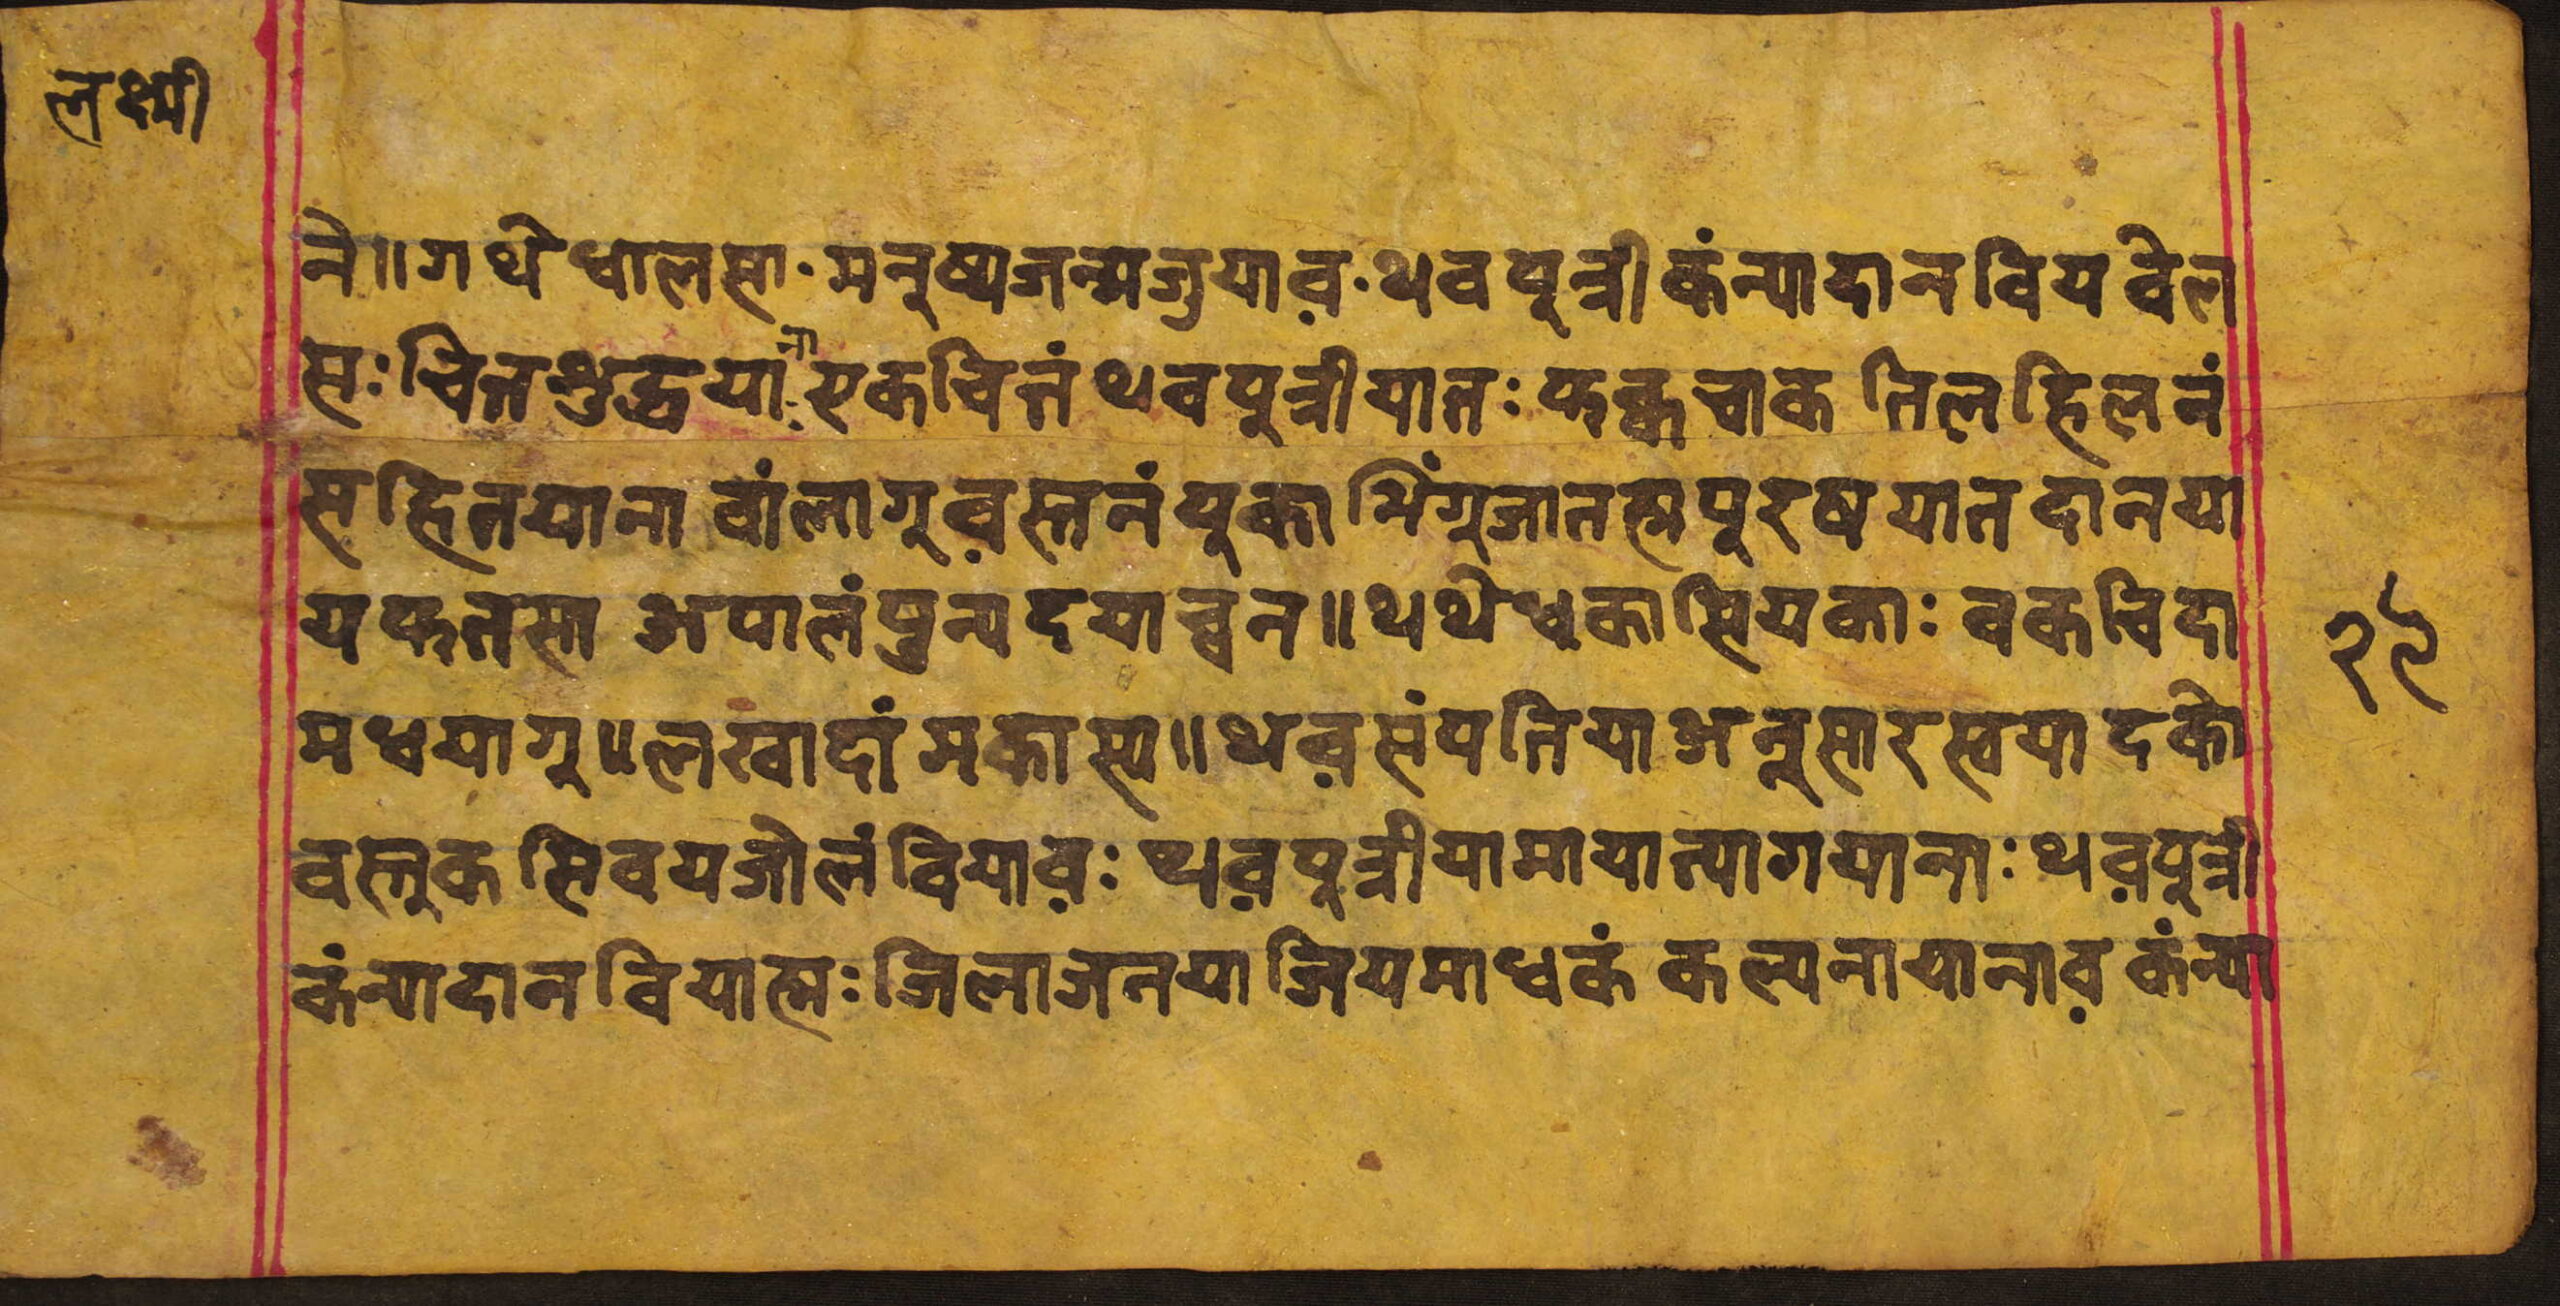 लक्ष्मी
ने॥गथेधालसा·मनुष्यजन्मजुयाव़·थवपूत्रीकंन्यादानवियवेल
सः चित्तशुद्धयाना एकचित्तं थवपुत्रीयातः फक्कचाक तिलहिलनं
सहितयाना वांलागूव़स्तनं पूका भिंगूजातह्मपूरषयात दानया
यफतसा अपालंपुन्यदयाच्वन॥थथेधकासियकाः वकविदा
मध्वयागू॥लखादांमकास्य॥थव़संपतियाअनूसारस्वयादको
वस्तुक सिवयजोलंवियाव़ः थव़पूत्रीयामायात्यागयानाः थव़पूत्री
कंन्यादानवियाह्मः जिलाजनयाजियमाधकं कल्पनायानाव़ कंन्या
२९